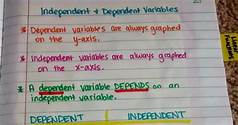 Independent + Dependent Variables
* Dependent variables are always graphed
on the y-axis.
* Independent variables are always graphed
on the x-axis.
* A dependent variable DEPENDS on an
independent variable.
DEPENDENT INDEPENDENT